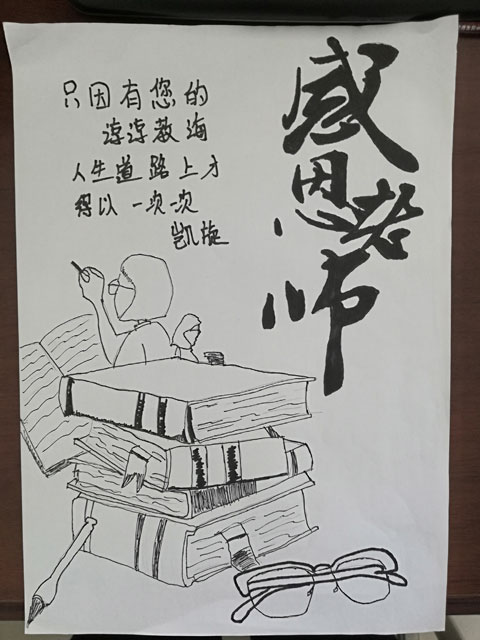 感恩老师
只因有您的
谆谆教海
人生道路上才
得以一次一次
凯旋